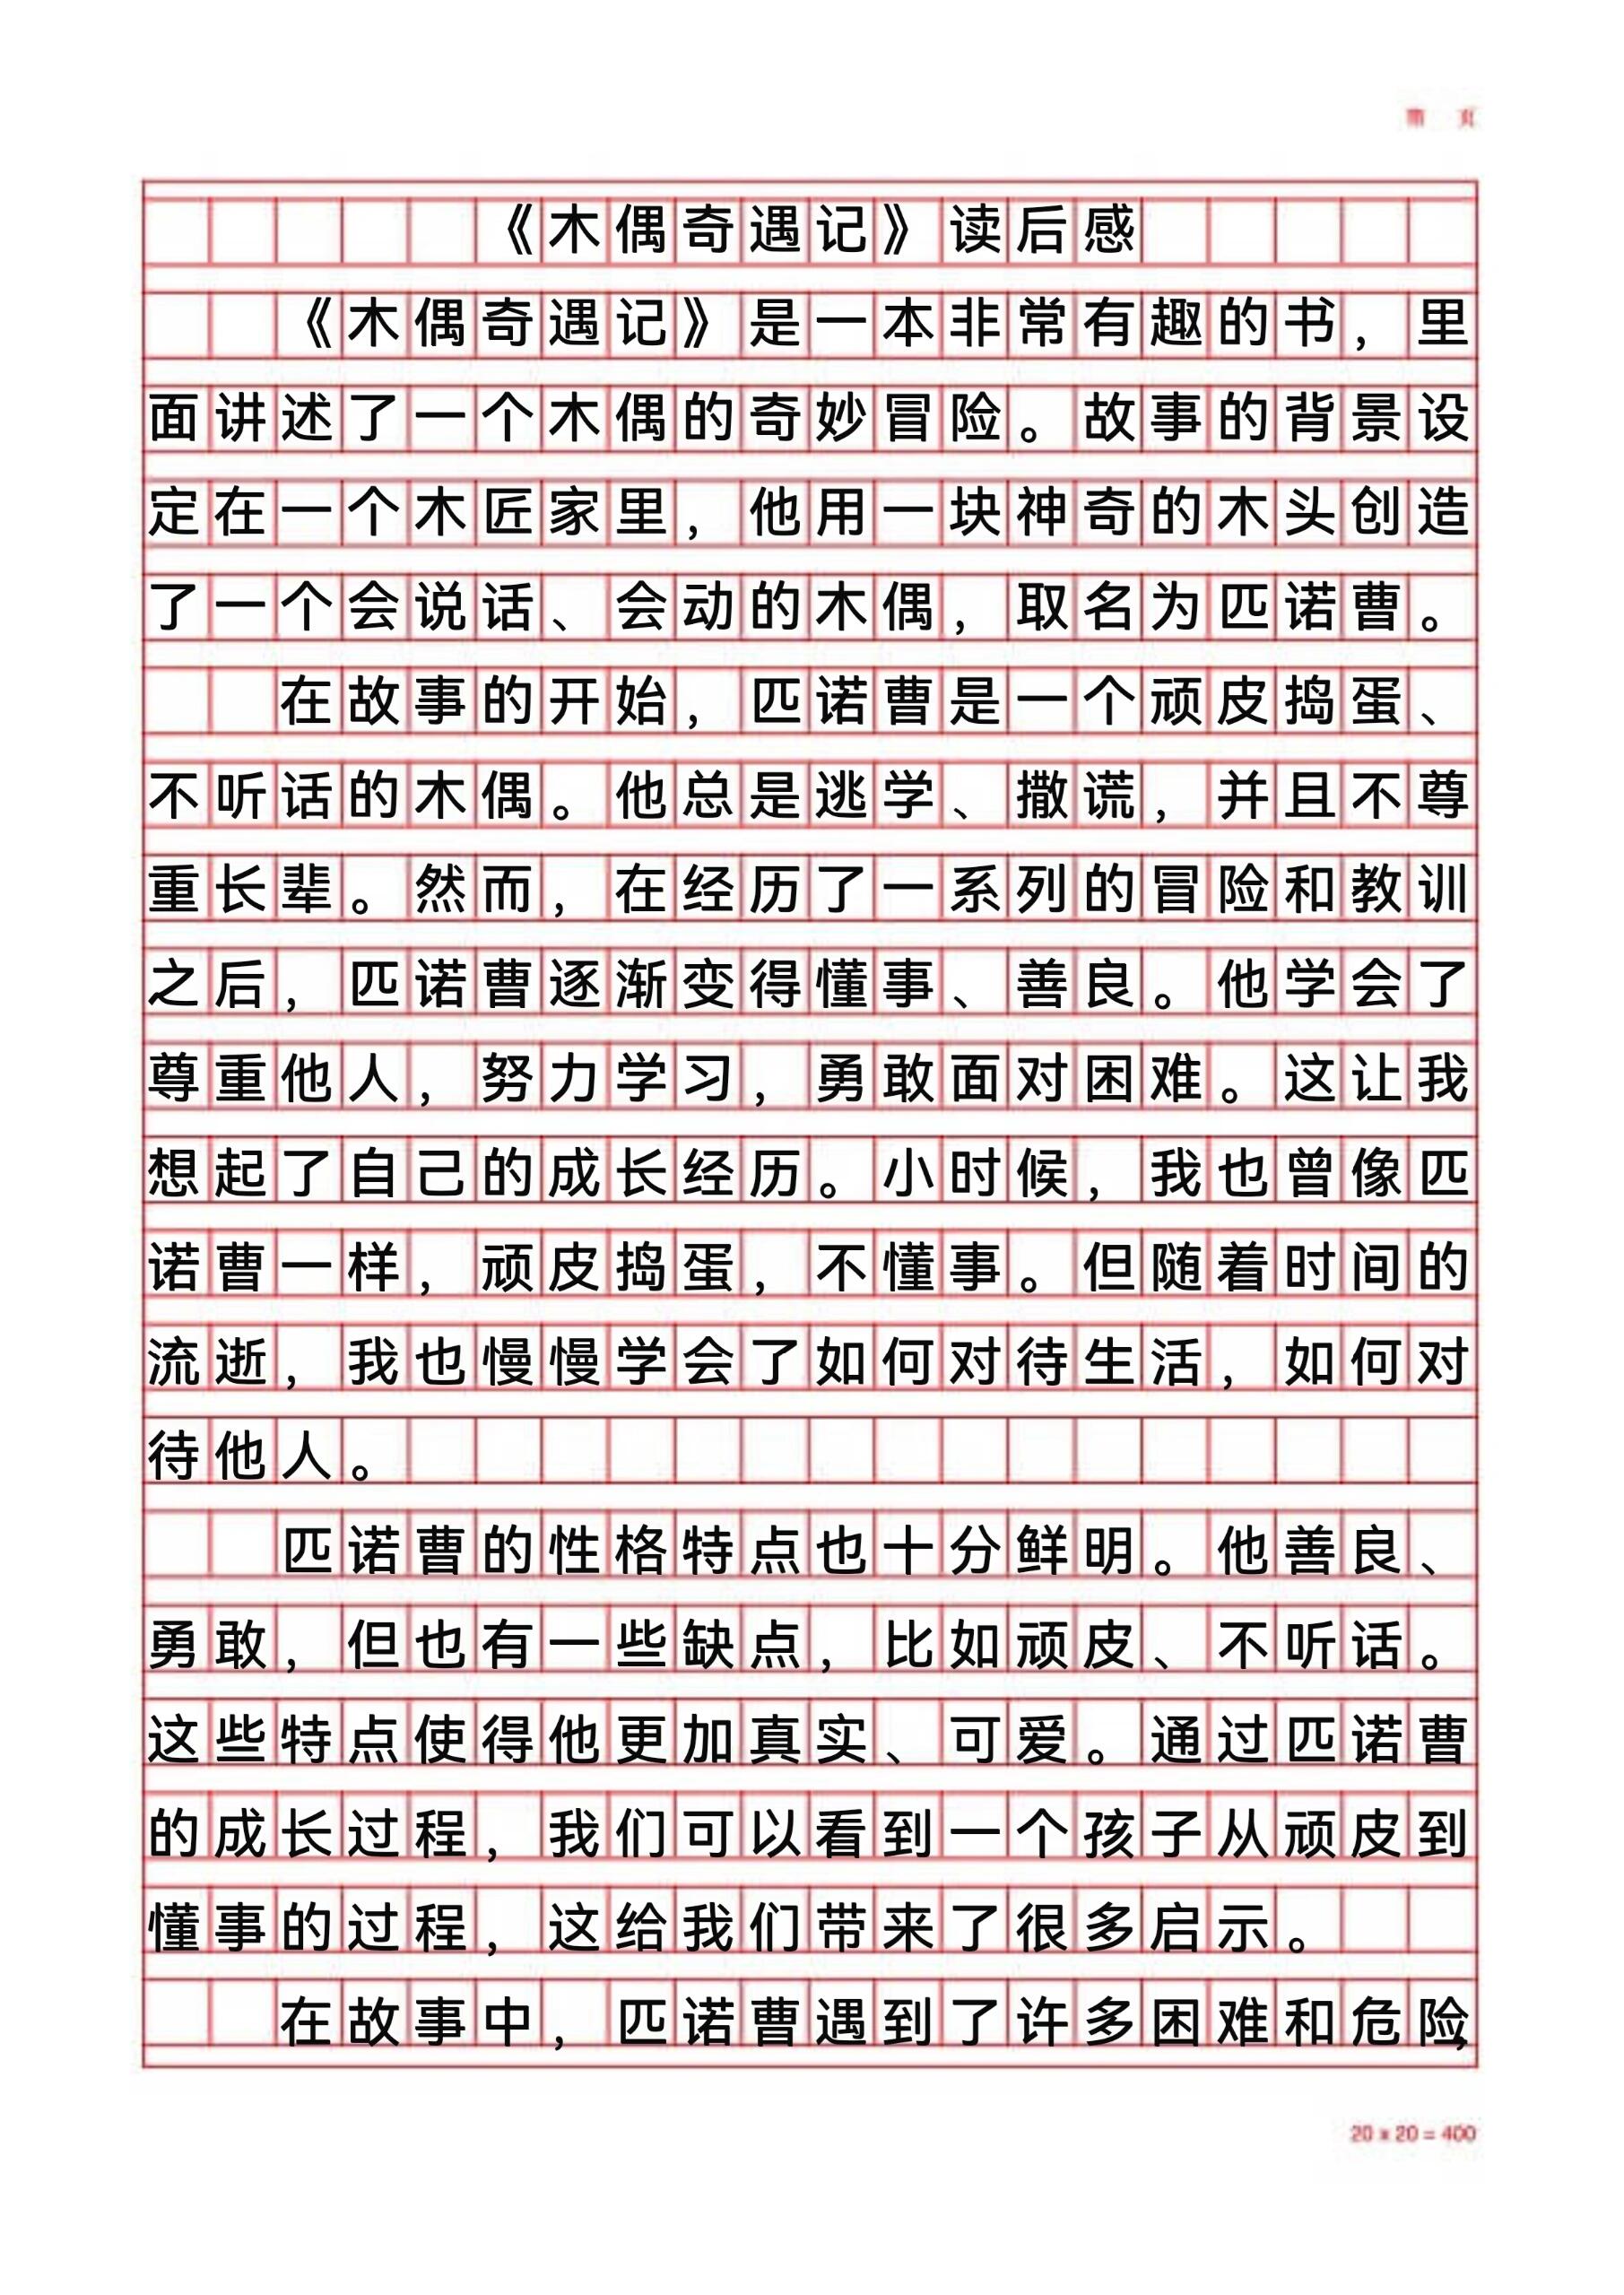 第 页
《木偶奇遇记》读后感
《木偶奇遇记》是一本非常有趣的书，里
面讲述了一个木偶的奇妙冒险。故事的背景设
定在一个木匠家里，他用一块神奇的木头创造
了一个会说话、会动的木偶，取名为匹诺曹。
在故事的开始，匹诺曹是一个顽皮捣蛋、
不听话的木偶。他总是逃学、撒谎，并且不尊
重长辈。然而，在经历了一系列的冒险和教训
之后，匹诺曹逐渐变得懂事、善良。他学会了
尊重他人，努力学习，勇敢面对困难。这让我
想起了自己的成长经历。小时候，我也曾像匹
诺曹一样，顽皮捣蛋，不懂事。但随着时间的
流逝，我也慢慢学会了如何对待生活，如何对
待他人。
匹诺曹的性格特点也十分鲜明。他善良、
勇敢，但也有一些缺点，比如顽皮、不听话。
这些特点使得他更加真实、可爱。通过匹诺曹
的成长过程，我们可以看到一个孩子从顽皮到
懂事的过程，这给我们带来了很多启示。
在故事中，匹诺曹遇到了许多困难和危险，
20 x 20 = 400